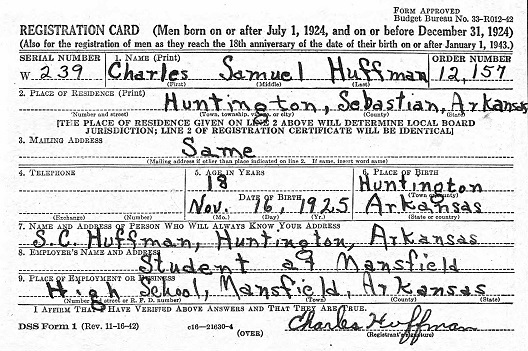 FORM APPROVED
Budget Bureau No. 33-R012-42
REGISTRATION CARD (Men born on or after July 1, 1924, and on or before December 31, 1924)
(Also for the registration of men as they reach the 18th anniversary of the date of their birth on or after January 1, 1943.)
SERIAL NUMBER 1. NAME (Print) ORDER NUMBER
W 239 Charles Samuel Huffman 12,157
(First) (Middle) (Last)
2. PLACE OF RESIDENCE (Print)
Huntington, Sebastian, Arkansas
(Number and street) (Town, township, village, or city) (County) (State)
[THE PLACE OF RESIDENCE GIVEN ON LINE 2 ABOVE WILL DETERMINE LOCAL BOARD
JURISDICTION; LINE 2 OF REGISTRATION CERTIFICATE WILL BE IDENTICAL]
3. MAILING ADDRESS
Same
(Mailing address if other than place indicated on line 2. If same, insert word same)
4. TELEPHONE 5. AGE IN YEARS 6. PLACE OF BIRTH
18 Huntington
(Town or county)
DATE OF BIRTH
Nov. 16, 1925 Arkansas
(Exchange) (Number) (Mo.) (Day) (Yr.) (State or country)
7. NAME AND ADDRESS OF PERSON WHO WILL ALWAYS KNOW YOUR ADDRESS
S.C. Huffman, Huntington, Arkansas
8. EMPLOYER'S NAME AND ADDRESS
Student at Mansfield
9. PLACE OF EMPLOYMENT OR BUSINESS
High School, Mansfield, Arkansas
(Number and street or R. F. D. number) (Town) (County) (State)
I AFFIRM THAT I HAVE VERIFIED ABOVE ANSWERS AND THAT THEY ARE TRUE.
DSS Form 1 (Rev. 11-16-42) c16—21630-4 Charles Huffman
(OVER) (Registrant's signature)